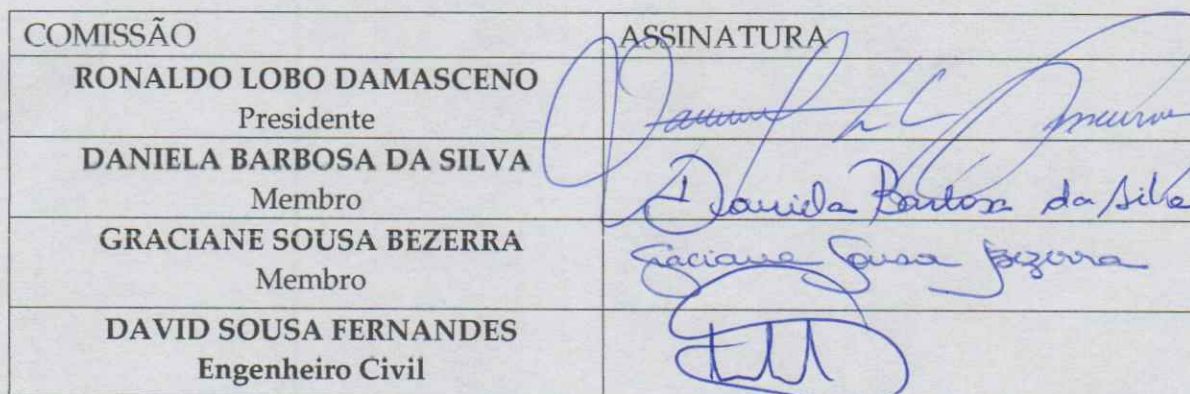 COMISSÃO ASSINATURA
RONALDO LOBO DAMASCENO
Presidente
DANIELA BARBOSA DA SILVA
Membro
Daniela Barbosa da Silva
GRACIANE SOUSA BEZERRA
Membro
Graciane Sousa Bezerra
DAVID SOUSA FERNANDES
Engenheiro Civil